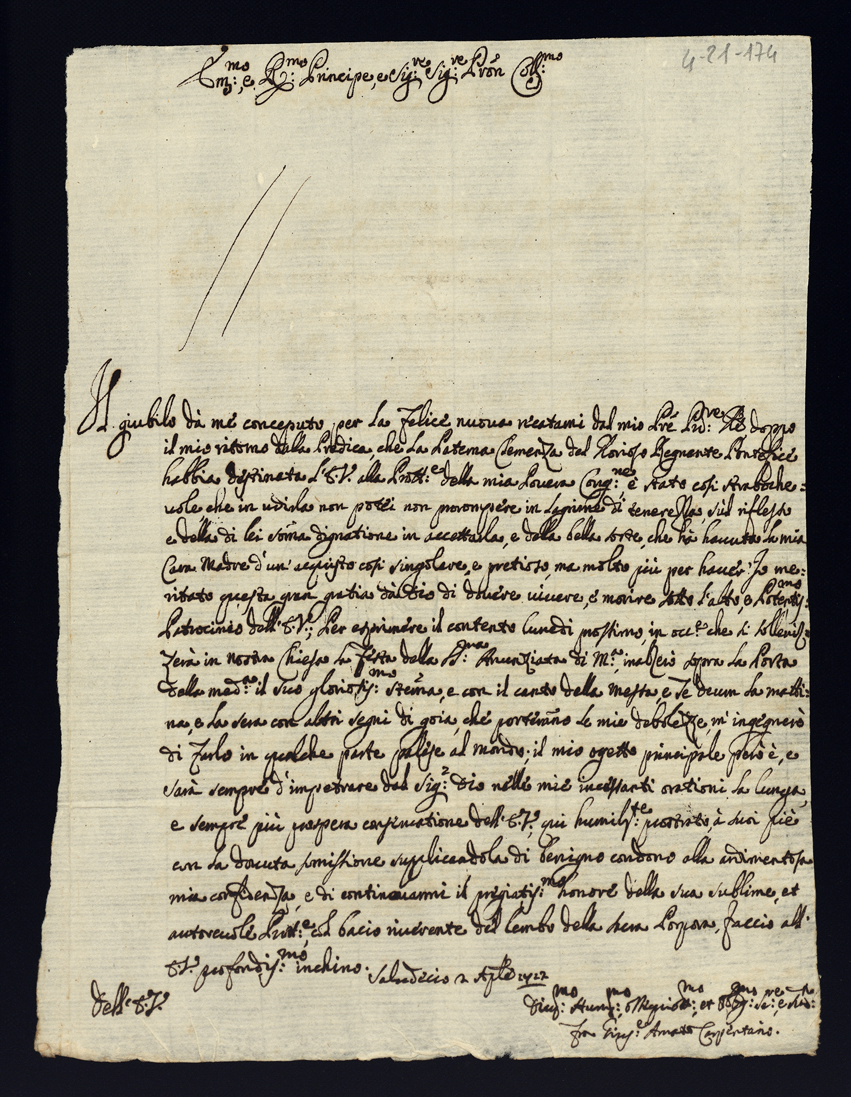 4-21-174
Em:mo, e R:mo Principe, e Sig:re Sig:re Prōn Coll:mo
Il giubilo dà me conceputo per la felice nuova recatami dal mio Prē doppo
il mio ritorno dalla Predica, che la Paterna Clemenza del Glorioso Regnante Pontefice
habbia destinata l'E.V. alla Prott:e della mia Povera Cong:ne è stato così straboche=
vole che in udirla non potei non prorompere in lagrime di tenerezza, sul riflesso
e della di lei som̄a dignatione in accettarla, e della bella sorte, che hà havuta la mia
Cara Madre d'un' acquisto così singolare, e pretioso, ma molto più per haver' Io me=
ritato questa gran gratia dà Dio di dovere vivere, è morire sotto l'alto, e Potentis:mo
Patrocinio dell'E.V.; Per esprimere il contento lunedì prossimo, in occ:e che si solleniz=
zerà in nostra Chiesa la festa della SS:ma Anunziata di M:a, inalzerò sopra la Porta
della mad:ma il suo gloriosis:mo stem̄a, e con il canto della Messa, e Te Deum la matti=
na, e la sera con altri segni di goia, che porteran̄o le mie debolezze, m'ingegnerò
di farlo in qualche parte palese al mondo; il mio ogetto principale però è, e
sarà sempre d'impetrare dal Sig:e Dio nelle mie incessanti orationi la lunga,
e sempre più prospera conservatione dell'E.V., qui humilm:te prostrato, à suoi piè
con la dovuta somissione supplicandola di benigno condono alla ardimentosa
mia confidenza, e di continuarmi il pregiatis:mo honore della sua sublime, et
autorevole Prott:e, col bacio riverente del lembo della sacra Porpora, faccio all'
E.V. profondis:mo inchino. Saludecio 2 Aple 1712
Dell'E.V.
Div:mo Hum:mo, et Obb:mo
fra Amato Carpentario.